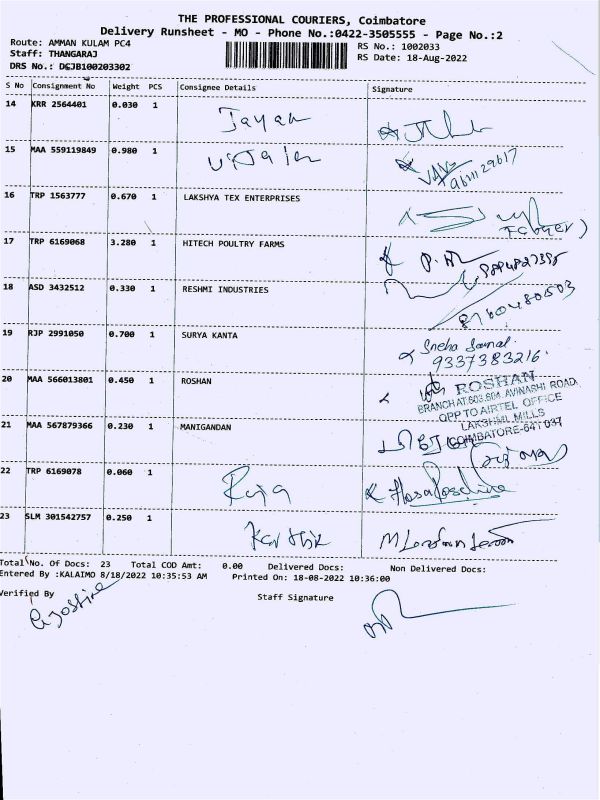 THE PROFESSIONAL COURIERS, Coimbatore
Delivery Runsheet - MO - Phone No.:0422-3505555 - Page No.:2
Route: AMMAN KULAM PC4
RS No.: 1002033
Staff: THANGARAJ
RS Date: 18-Aug-2022
DRS No.: DCJB100203302
S No Consignment No Weight PCS Consignee Details Signature
14 KRR 2564401 0.030 1 Jayan
15 MAA 559119849 0.980 1
16 TRP 1563777 0.670 1 LAKSHYA TEX ENTERPRISES
17 TRP 6169068 3.280 1 HITECH POULTRY FARMS
18 ASD 3432512 0.330 1 RESHMI INDUSTRIES
8760480503
19 RJP 2991050 0.700 1 SURYA KANTA
9337383216
20 MAA 566013801 0.450 1 ROSHAN
ROSHAN
BRANCH AT.603,604, AVINASHI ROAD,
OPP TO AIRTEL OFFICE
LAKSHMI MILLS
COIMBATORE-641 037
21 MAA 567879366 0.230 1 MANIGANDAN
22 TRP 6169078 0.060 1 Raja
23 SLM 301542757 0.250 1 Karthik
Total No. Of Docs: 23 Total COD Amt: 0.00 Delivered Docs: Non Delivered Docs:
Entered By :KALAIMO 8/18/2022 10:35:53 AM Printed On: 18-08-2022 10:36:00
Verified By
Staff Signature